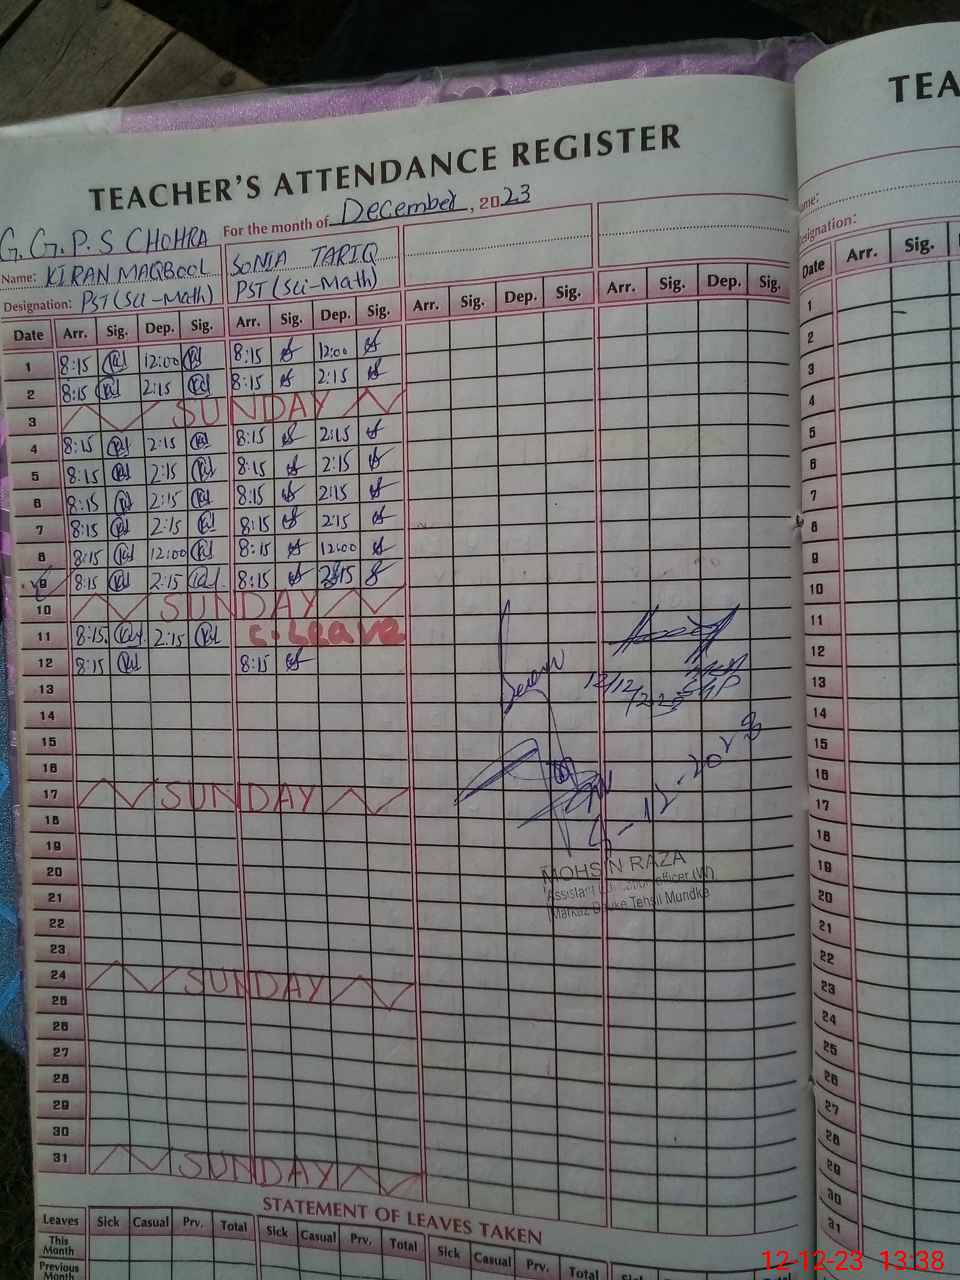 TEACHER'S ATTENDANCE REGISTER
For the month of December, 2023
G.G.P.S CHOHRA
Name: KIRAN MAQBOOL SONIA TARIQ
Designation: PST (Sci-Math) PST (Sci-Math)
Date Arr. Sig. Dep. Sig. Arr. Sig. Dep. Sig. Arr. Sig. Dep. Sig. Arr. Sig. Dep. Sig.
1 8:15 12:00 8:15 12:00
2 8:15 2:15 8:15 2:15
3 SUNDAY
4 8:15 2:15 8:15 2:15
5 8:15 2:15 8:15 2:15
6 8:15 2:15 8:15 2:15
7 8:15 2:15 8:15 2:15
8 8:15 12:00 8:15 12:00
9 8:15 2:15 8:15 2:15
10 SUNDAY
11 8:15 2:15 C.Leave
12 8:15 8:15
13
14
15
16
17 SUNDAY
18
19
20
21
22
23
24 SUNDAY
25
26
27
28
29
30
31 SUNDAY
MOHSIN RAZA
Assistant Officer (W)
Markaz Tehsil Mundke
STATEMENT OF LEAVES TAKEN
Leaves Sick Casual Prv. Total Sick Casual Prv. Total Sick Casual Prv. Total
This Month
Previous Month
TEA
Date Arr. Sig.
1
2
3
4
5
6
7
8
9
10
11
12
13
14
15
16
17
18
19
20
21
22
23
24
25
26
27
28
29
30
31
12-12-23 13:38